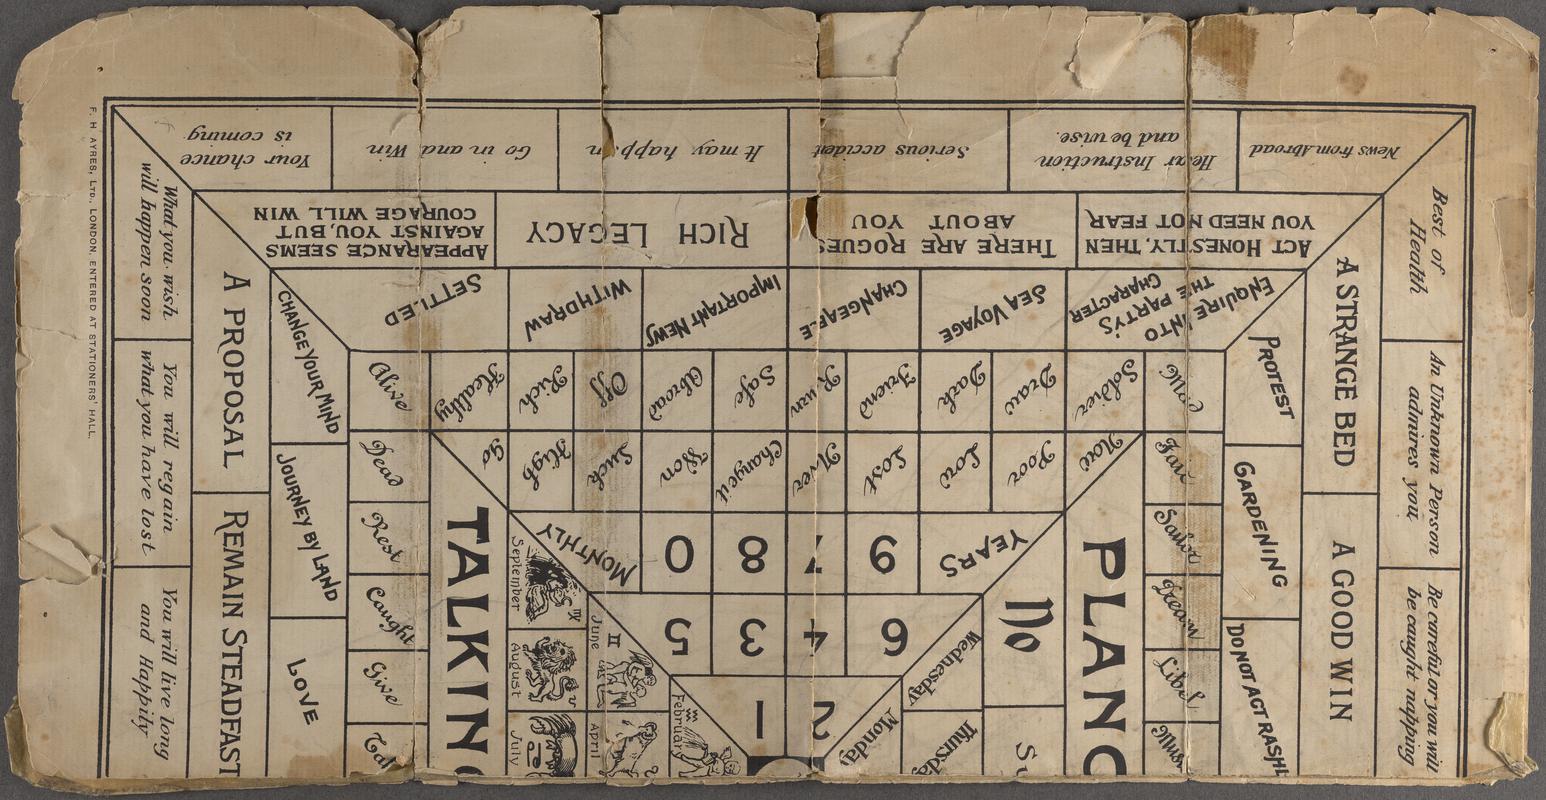 F. H. AYRES, LTD., LONDON, ENTERED AT STATIONERS' HALL.
News from Abroad
Hear Instruction
and be wise.
Serious accident
It may happen
Go in and Win
Your chance
is coming.
What you wish
will happen soon
You will regain
what you have lost
You will live long
and Happily
Best of
Health
An Unknown Person
admires you
Be careful or you will
be caught napping
ACT HONESTLY, THEN
YOU NEED NOT FEAR
THERE ARE ROGUES
ABOUT YOU
RICH LEGACY
APPEARANCE SEEMS
AGAINST YOU, BUT
COURAGE WILL WIN
A PROPOSAL
REMAIN STEADFAST
A STRANGE BED
A GOOD WIN
ENQUIRE INTO
THE PARTY'S
CHARACTER
SEA VOYAGE
CHANGEABLE
IMPORTANT NEWS
WITHDRAW
SETTLED
CHANGE YOUR MIND
JOURNEY BY LAND
LOVE
PROTEST
GARDENING
DO NOT ACT RASHL
Soldier
Draw
Dark
Friend
Ruin
Safe
Abroad
Off
Rich
Healthy
Alive
Dead
Rest
Caught
Give
Far
Libel
Now
Poor
Low
Lost
Never
Change it
Won
Luck
High
Go
TALKING
PLANC
YEARS
9
7
8
0
MONTHLY
No
6
4
3
5
2
1
Wednesday
Monday
Thursday
Su
September
August
July
June
April
February